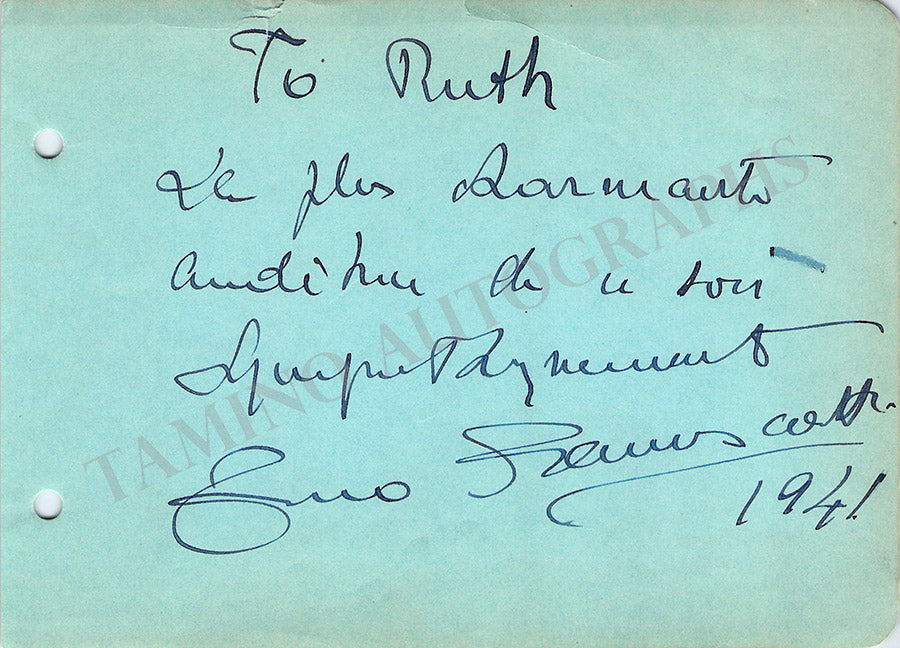 To Ruth
La plus charmante
auditrice de ce soir
Sympathiquement
Gino Francescatti
1941
TAMINO AUTOGRAPHS